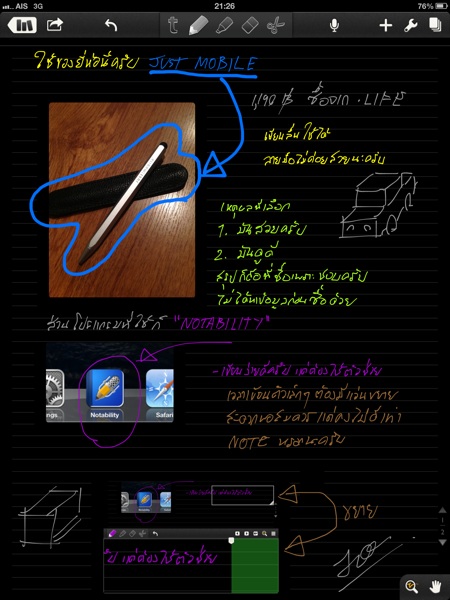 AIS 3G 21:26 76%
ใช้ของยี่ห้อนี้ครับ JUST MOBILE
1,190 ฿ ซื้อจาก .LIFE
เขียนลื่น ใช้ได้
ลายมือไม่ค่อยสวยนะครับ
เหตุผลที่เลือก
1. มันสวยครับ
2. มันดูดี
สรุปก็คือที่ซื้อเพราะชอบครับ
ไม่ได้หาข้อมูลก่อนซื้อด้วย
ส่วนโปรแกรมที่ใช้ก็ "NOTABILITY"
ngs Notability Safari
- เขียนง่ายดีครับ แต่ต้องใช้ตัวช่วย
เวลาเขียนตัวเล็กๆ ต้องมีแว่นขยาย
NOTE หรอกนะครับ
Notability
ขยาย
แต่ต้องใช้ตัวช่วย